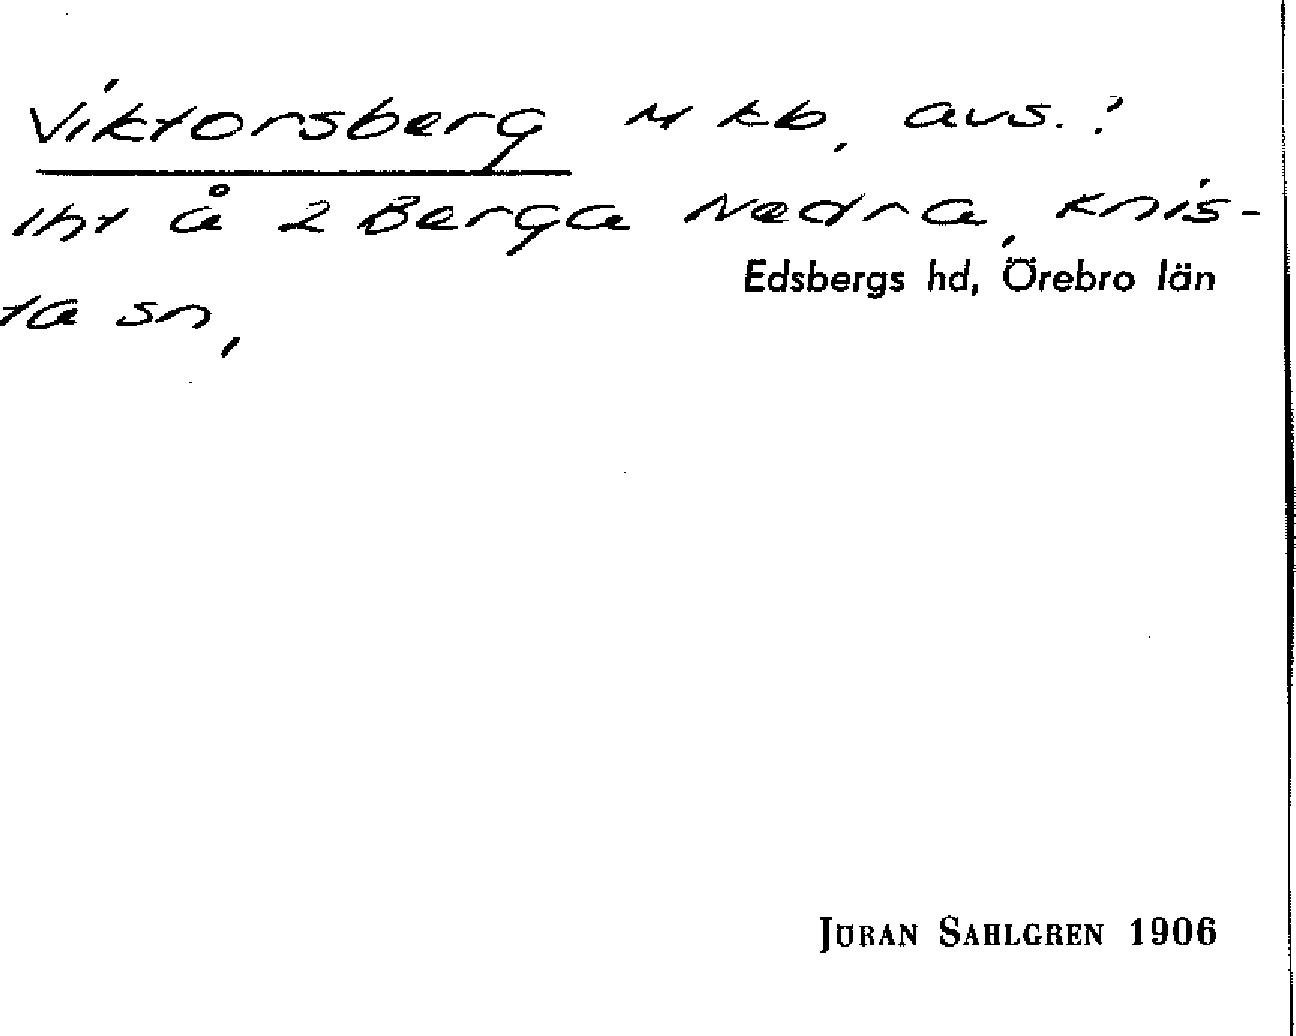 Viktorsberg M kb, avs. :
lht å 2 Berga Nedra, Knis-
Edsbergs hd, Örebro län
ta sn,
JÖRAN SAHLGREN 1906